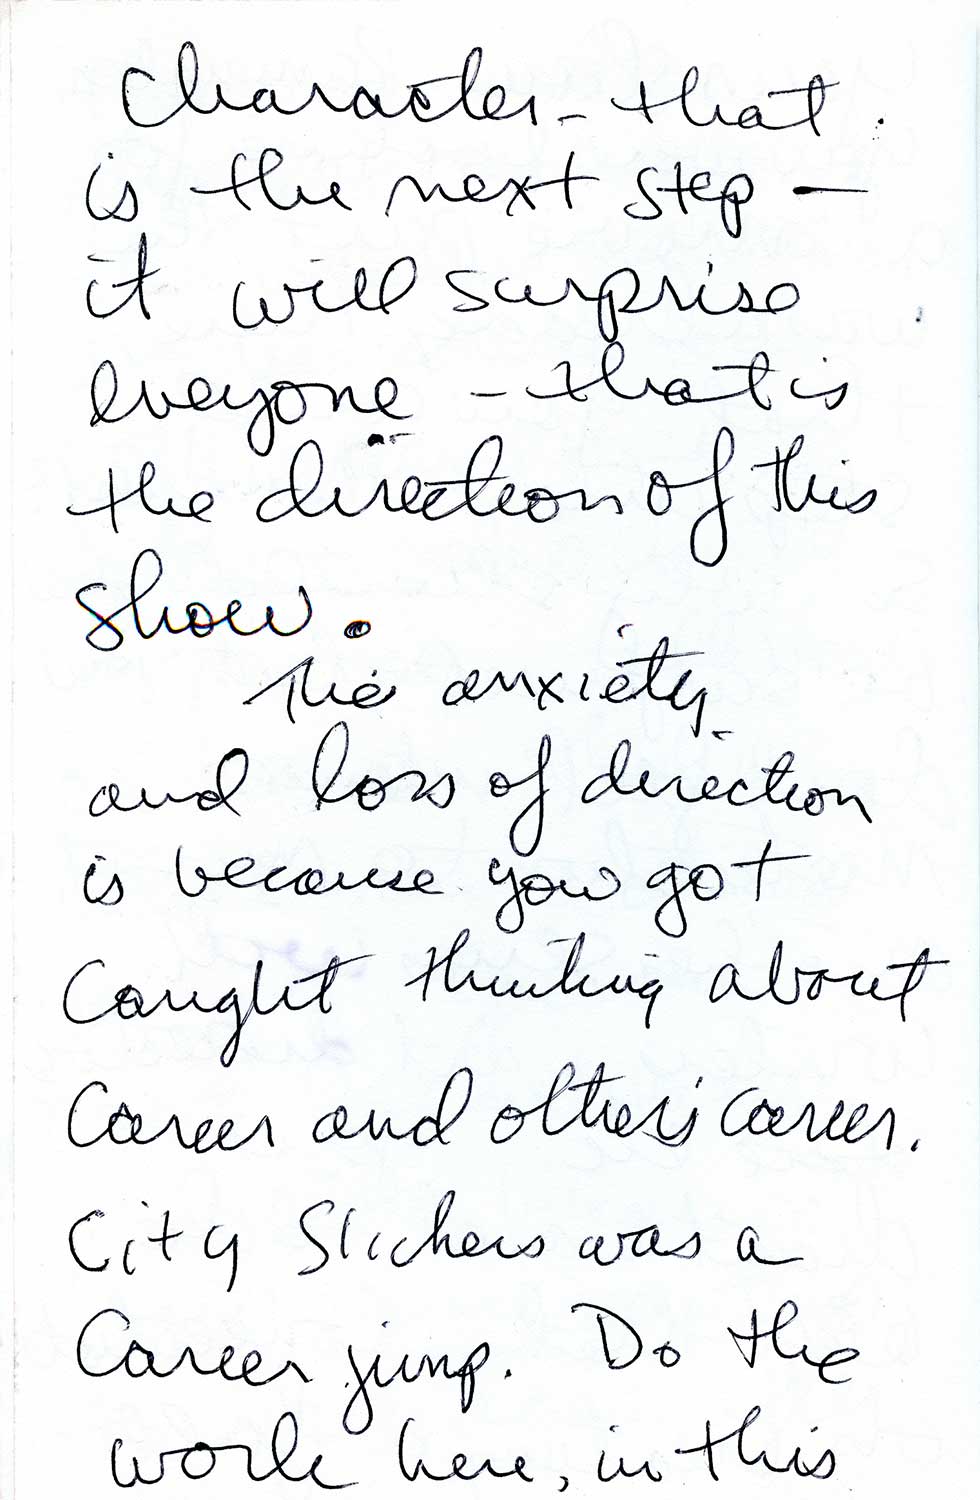 Character - that
is the next step -
it will surprise
everyone - that is
the direction of this
show.
The anxiety
and loss of direction
is because you got
caught thinking about
career and other's career.
City Slickers was a
career jump. Do the
work here, in this